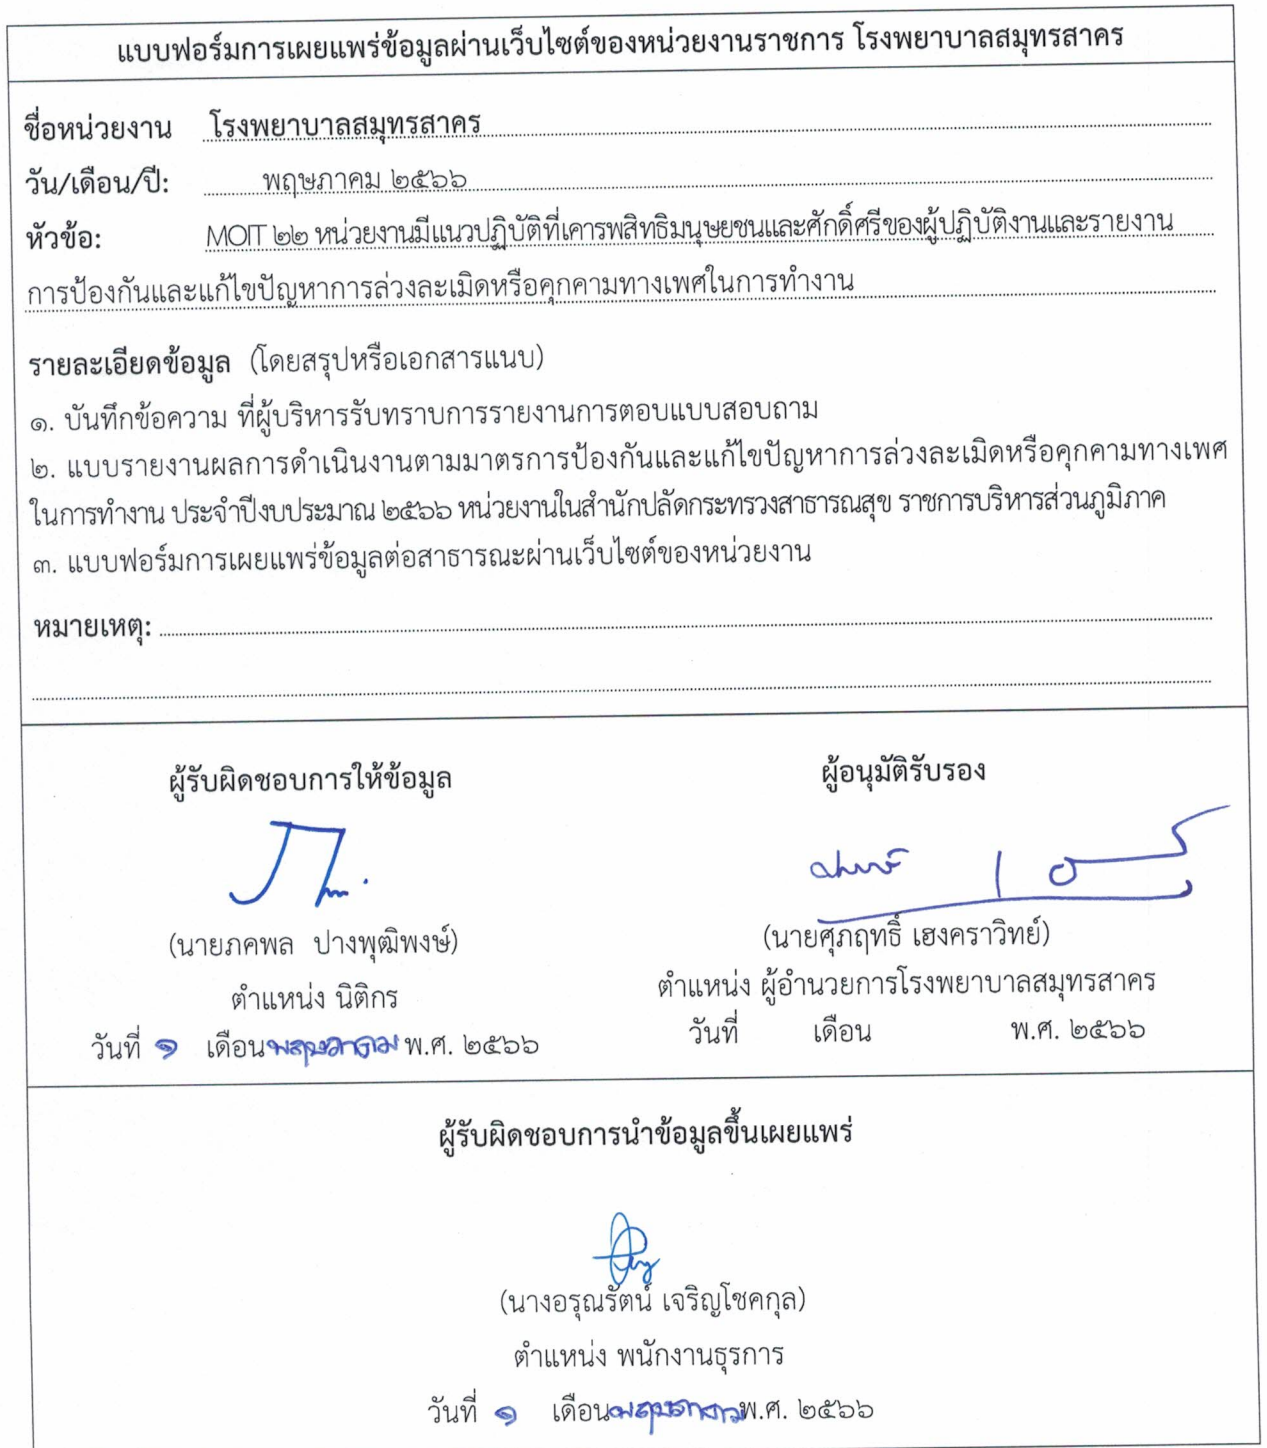 แบบฟอร์มการเผยแพร่ข้อมูลผ่านเว็บไซต์ของหน่วยงานราชการ โรงพยาบาลสมุทรสาคร
ชื่อหน่วยงาน โรงพยาบาลสมุทรสาคร
วัน/เดือน/ปี: พฤษภาคม ๒๕๖๖
หัวข้อ: MOIT ๒๒ หน่วยงานมีแนวปฏิบัติที่เคารพสิทธิมนุษยชนและศักดิ์ศรีของผู้ปฏิบัติงานและรายงาน
การป้องกันและแก้ไขปัญหาการล่วงละเมิดหรือคุกคามทางเพศในการทำงาน
รายละเอียดข้อมูล (โดยสรุปหรือเอกสารแนบ)
๑. บันทึกข้อความ ที่ผู้บริหารรับทราบการรายงานการตอบแบบสอบถาม
๒. แบบรายงานผลการดำเนินงานตามมาตรการป้องกันและแก้ไขปัญหาการล่วงละเมิดหรือคุกคามทางเพศ
ในการทำงาน ประจำปีงบประมาณ ๒๕๖๖ หน่วยงานในสำนักปลัดกระทรวงสาธารณสุข ราชการบริหารส่วนภูมิภาค
๓. แบบฟอร์มการเผยแพร่ข้อมูลต่อสาธารณะผ่านเว็บไซต์ของหน่วยงาน
หมายเหตุ:
ผู้รับผิดชอบการให้ข้อมูล
(นายภคพล ปางพุฒิพงษ์)
ตำแหน่ง นิติกร
วันที่ ๑ เดือน พฤษภาคม พ.ศ. ๒๕๖๖
ผู้อนุมัติรับรอง
(นายศุภฤทธิ์ เฮงคราวิทย์)
ตำแหน่ง ผู้อำนวยการโรงพยาบาลสมุทรสาคร
วันที่ เดือน พ.ศ. ๒๕๖๖
ผู้รับผิดชอบการนำข้อมูลขึ้นเผยแพร่
(นางอรุณรัตน์ เจริญโชคกุล)
ตำแหน่ง พนักงานธุรการ
วันที่ ๑ เดือน พฤษภาคม พ.ศ. ๒๕๖๖